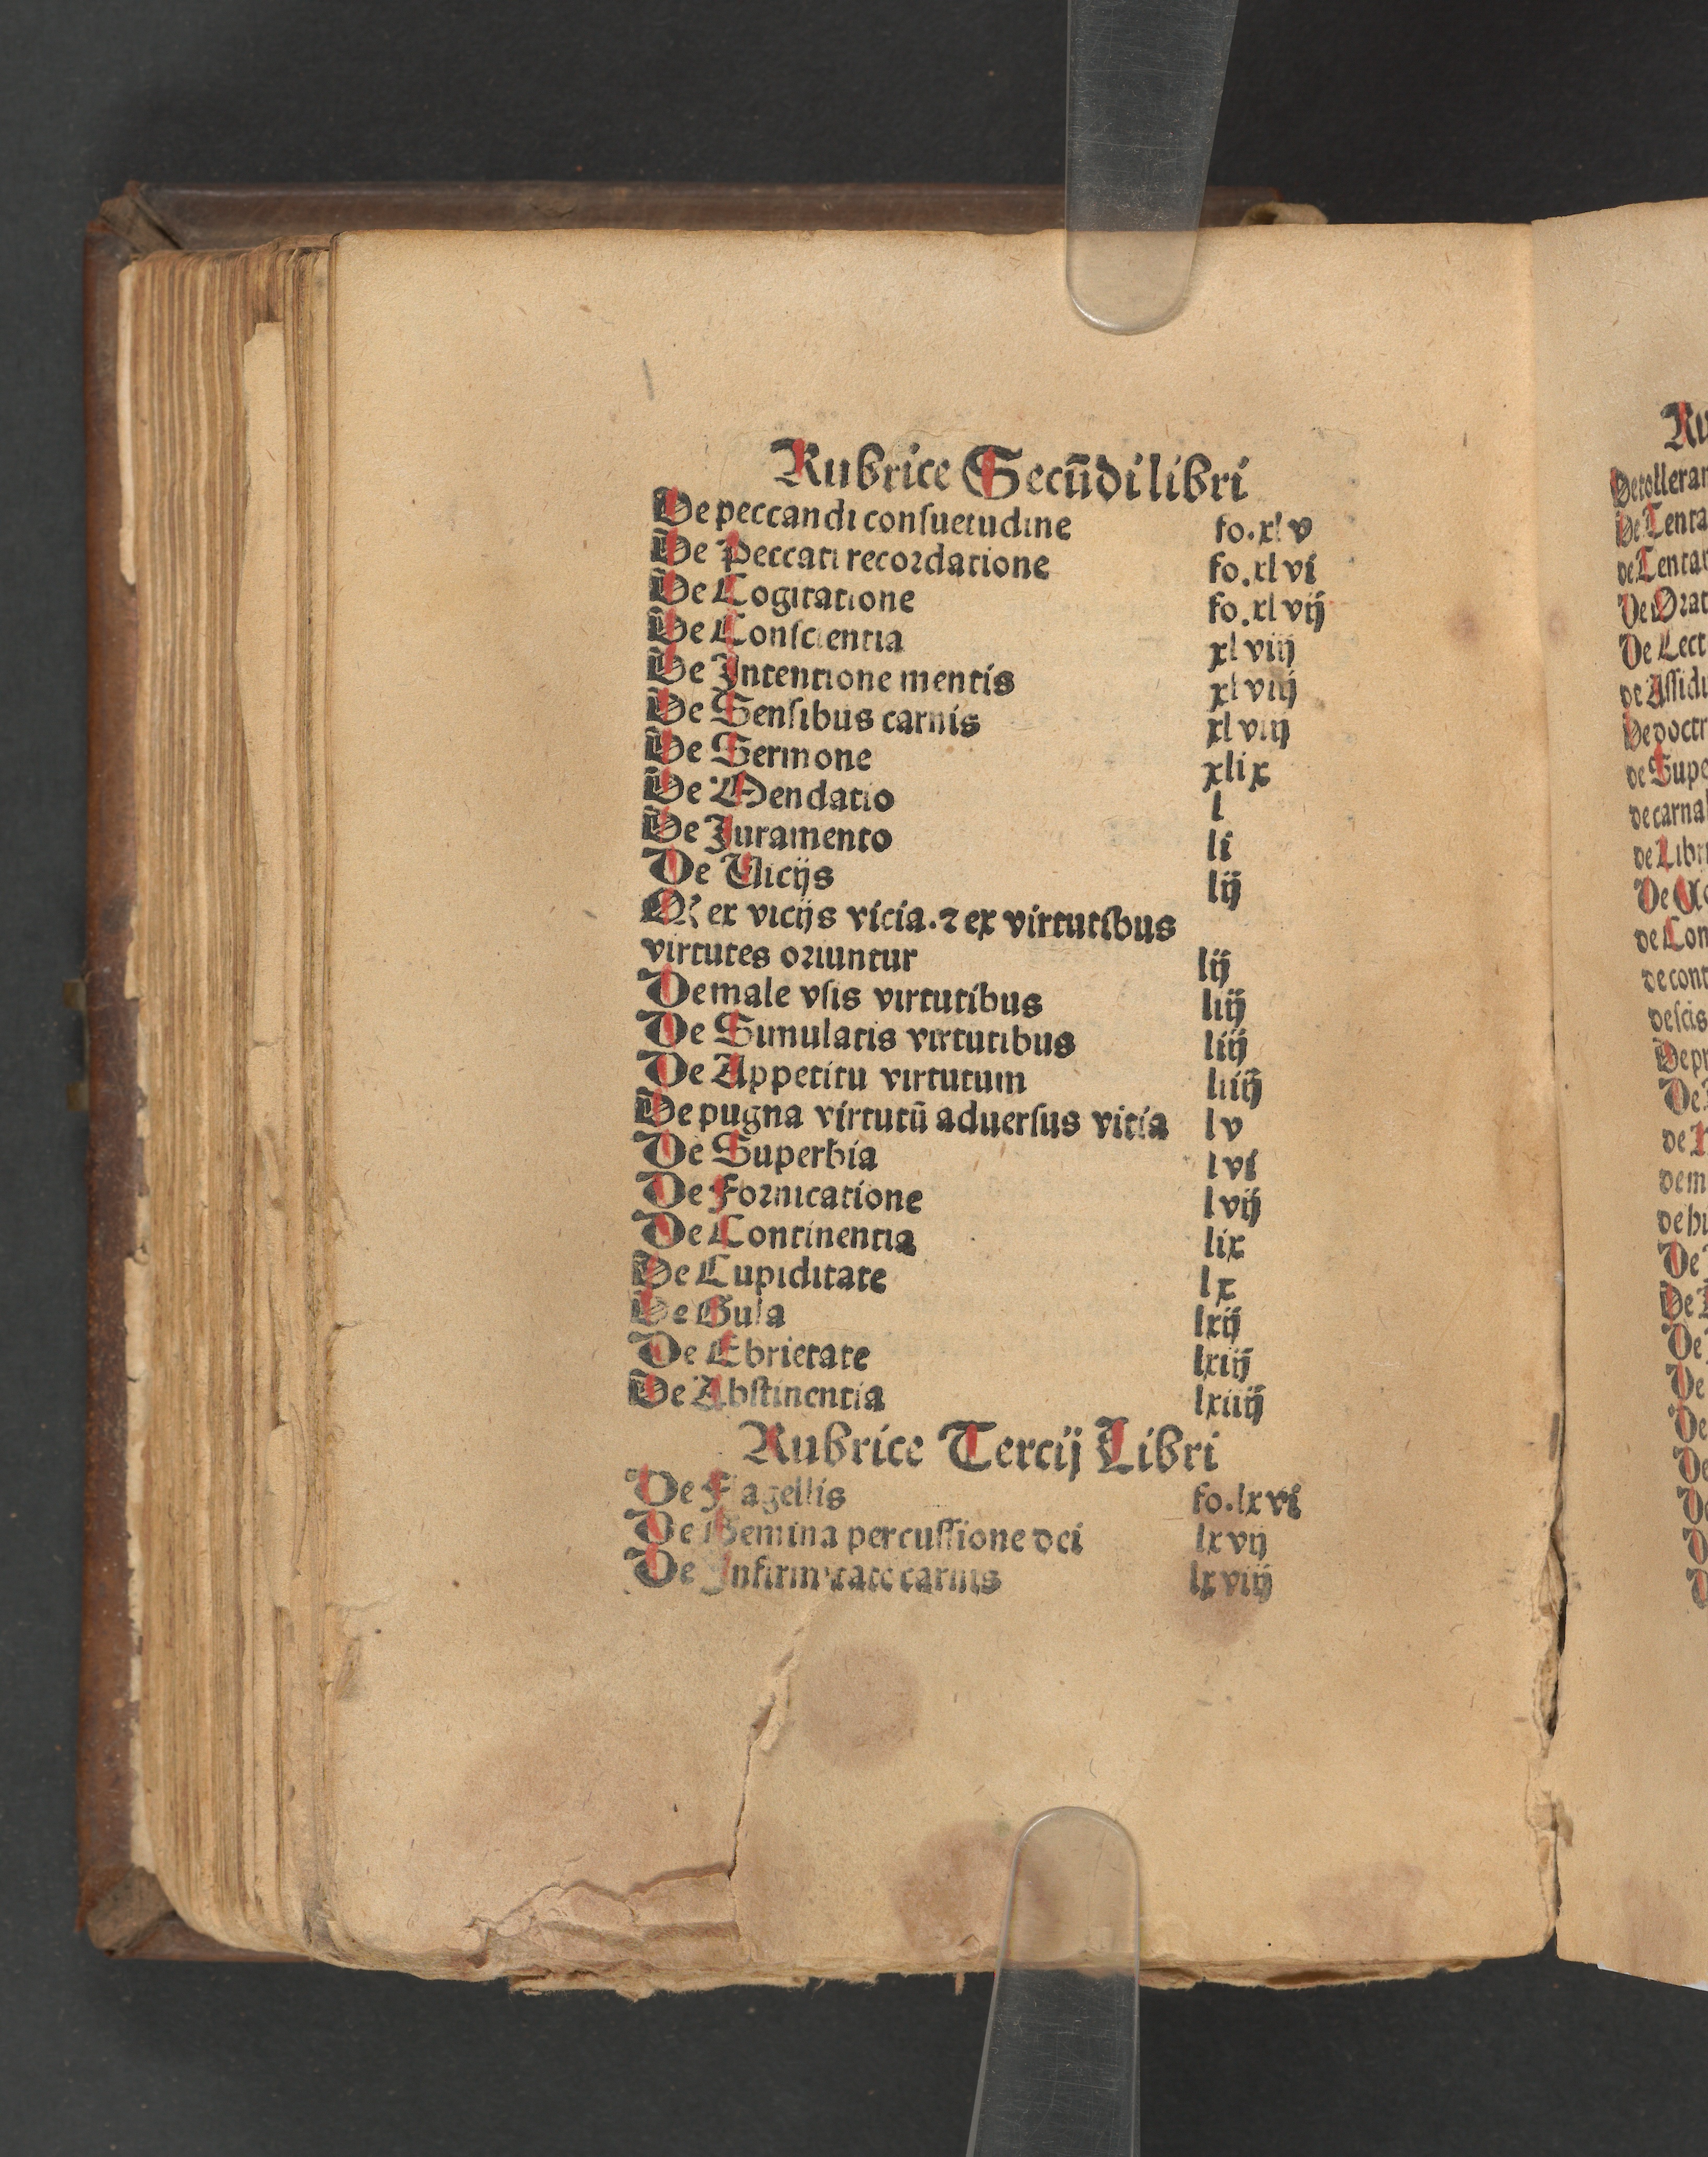 Rubrice Secūdi libri
De peccandi consuetudine fo.xlv
De Peccati recordatione fo.xlvi
De Cogitatione fo.xlvij
De Conscientia xlviij
De Intentione mentis xlviij
De Sensibus carnis xlviij
De Sermone xlix
De Mendatio l
De Juramento li
De Vicijs lij
Qꝛ ex vicijs vicia.⁊ ex virtutibus
virtutes oriuntur lij
De male vsis virtutibus liij
De Simulatis virtutibus liij
De Appetitu virtutum liiij
De pugna virtutū aduersus vitia lv
De Superbia lvi
De Fornicatione lvij
De Continentia lix
De Cupiditate lx
De Gula lxij
De Ebrietate lxiij
De Abstinentia lxiiij
Rubrice Tercij Libri
De Flagellis fo.lxvi
De Gemina percussione dei lxvij
De Infirmitate carnis lxviij
Ru
De tollerar
De Tenta
de Tentat
De Orat
De Lect
de Assidu
De doctr
de Supe
de carnal
de Libr
De
de Con
de cont
de scis
De pr
De
de
de m
de hu
De
De
De
De
De
De
De